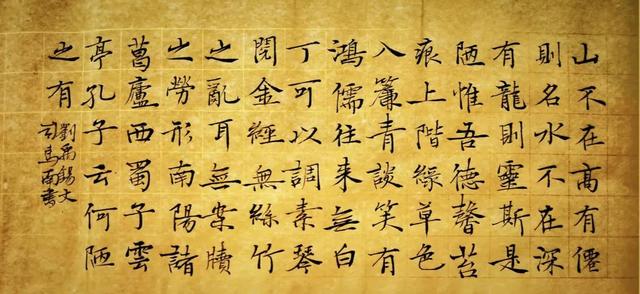 山不在高有僊
則名水不在深
有龍則靈斯是
陋惟吾德馨苔
痕上階緑草色
入簾青談笑有
鴻儒往来無白
丁可以調素琴
閱金經無絲竹
之亂耳無案牘
之勞形南陽諸
葛廬西蜀子雲
亭孔子云何陋
之有
劉禹錫文
司馬南書